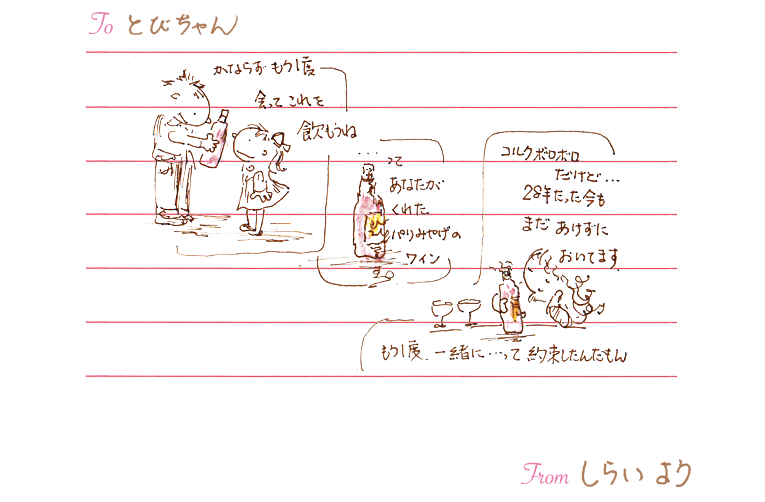 To とびちゃん
かならず もう1度
会って これを
飲もうね
・・・って
あなたが
くれた
パリみやげの
ワイン
コルクボロボロ
だけど・・・
28年たった今も
まだ あけずに
おいてます。
もう1度、一緒に・・・って 約束したんだもん
From しらい より